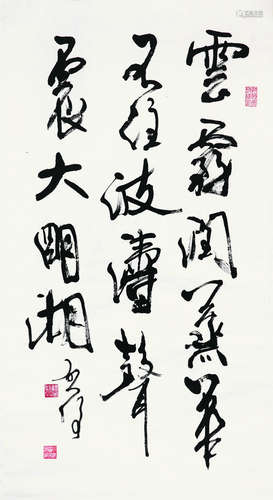 雲霧潤蒸華
不注波濤聲
震大明湖